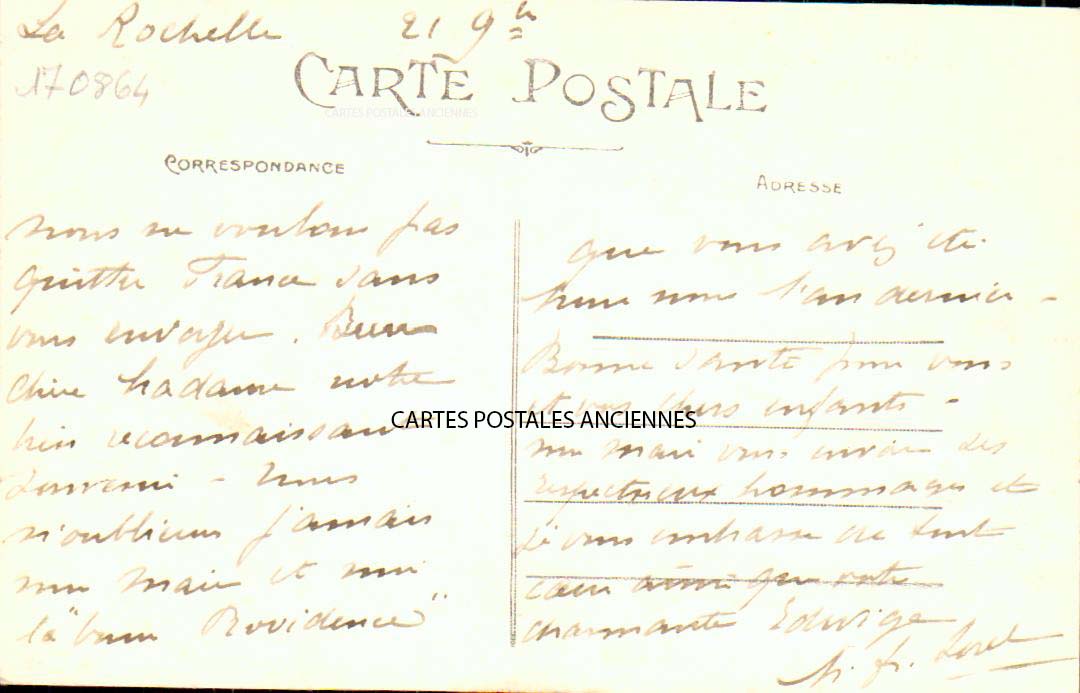 La Rochelle 21 9bre
170864
CARTE POSTALE
CARTES POSTALES ANCIENNES
CORRESPONDANCE
ADRESSE
nous ne voulons pas
quitter France sans
vous envoyer.
Chère Madame notre
bien reconnaissant
souvenir - Nous
n'oublions jamais
mon mari et moi
la "bonne Providence"
que vous avez été
pour nous l'an dernier -
Bonne santé pour vous
et vos chers enfants -
CARTES POSTALES ANCIENNES
mon mari vous envoie ses
respectueux hommages et
je vous embrasse de tout
cœur ainsi que votre
charmante Edwige